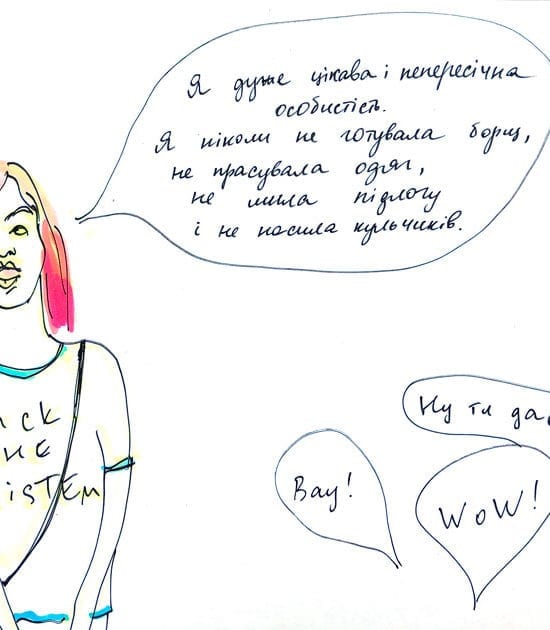 Я дуже цікава і непересічна
особистість.
Я ніколи не готувала борщ,
не прасувала одяг,
не мила підлогу
і не носила кульчиків.
ck
he
istem
Ну ти да
Вау!
WoW!